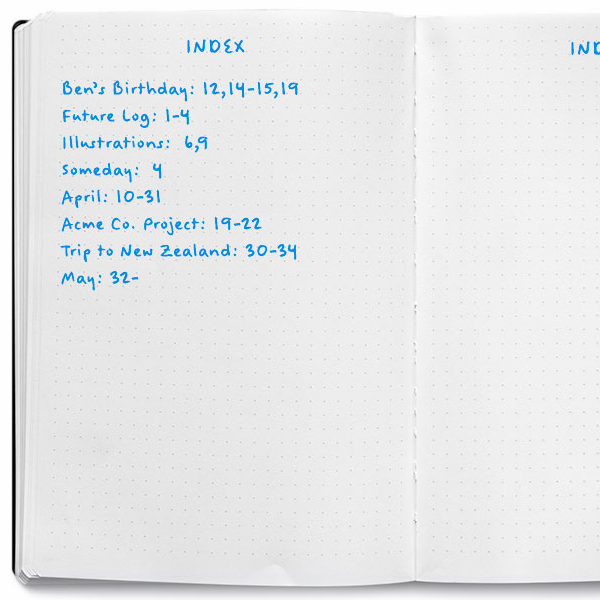 INDEX
Ben's Birthday: 12,14-15,19
Future Log: 1-4
Illustrations: 6,9
Someday: 4
April: 10-31
Acme Co. Project: 19-22
Trip to New Zealand: 30-34
May: 32-
IND